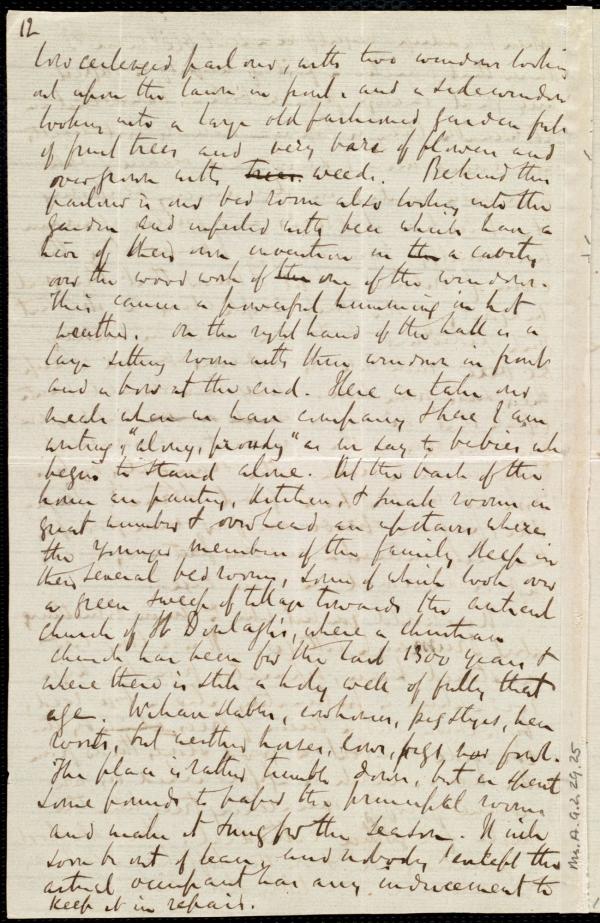 12
low ceilinged parlour, with two windows looking
out upon the lawn in front, and a side window
looking into a large old fashioned garden full
of fruit trees and very bare of flowers and
overgrown with trees. weeds. Behind this
parlour is our bed room also looking into the
garden and infested with bees which have a
hive of their own invention in the a cavity
over the wood work of the one of the windows.
This causes a powerful humming in hot
weather. On the right hand of the hall is a
large sitting room with three windows in front
and a bow at the end. Here we take our
meals when we have company & here I am
writing, "alony, proudy" as we say to babies who
begin to stand alone. At the back of the
house are pantry, kitchen, & small rooms in
great number & overhead an upstairs where
the younger members of the family sleep in
their several bedrooms, some of which look over
a green sweep of tillage towards the ancient
church of St Doulagh's, where a christian
church has been for the last 1300 years &
where there is still a holy well of fully that
age. We have stables, cowhouses, pigstyes, hen
roosts, but neither horses, cows, pigs, nor fowl.
The place is rather tumble down, but we spent
some pounds to paper the principal rooms
and make it snug for the season. It will
soon be out of lease, and nobody except the
actual occupant has any inducement to
keep it in repair.
Ms. A. 9. 2. 29. 25